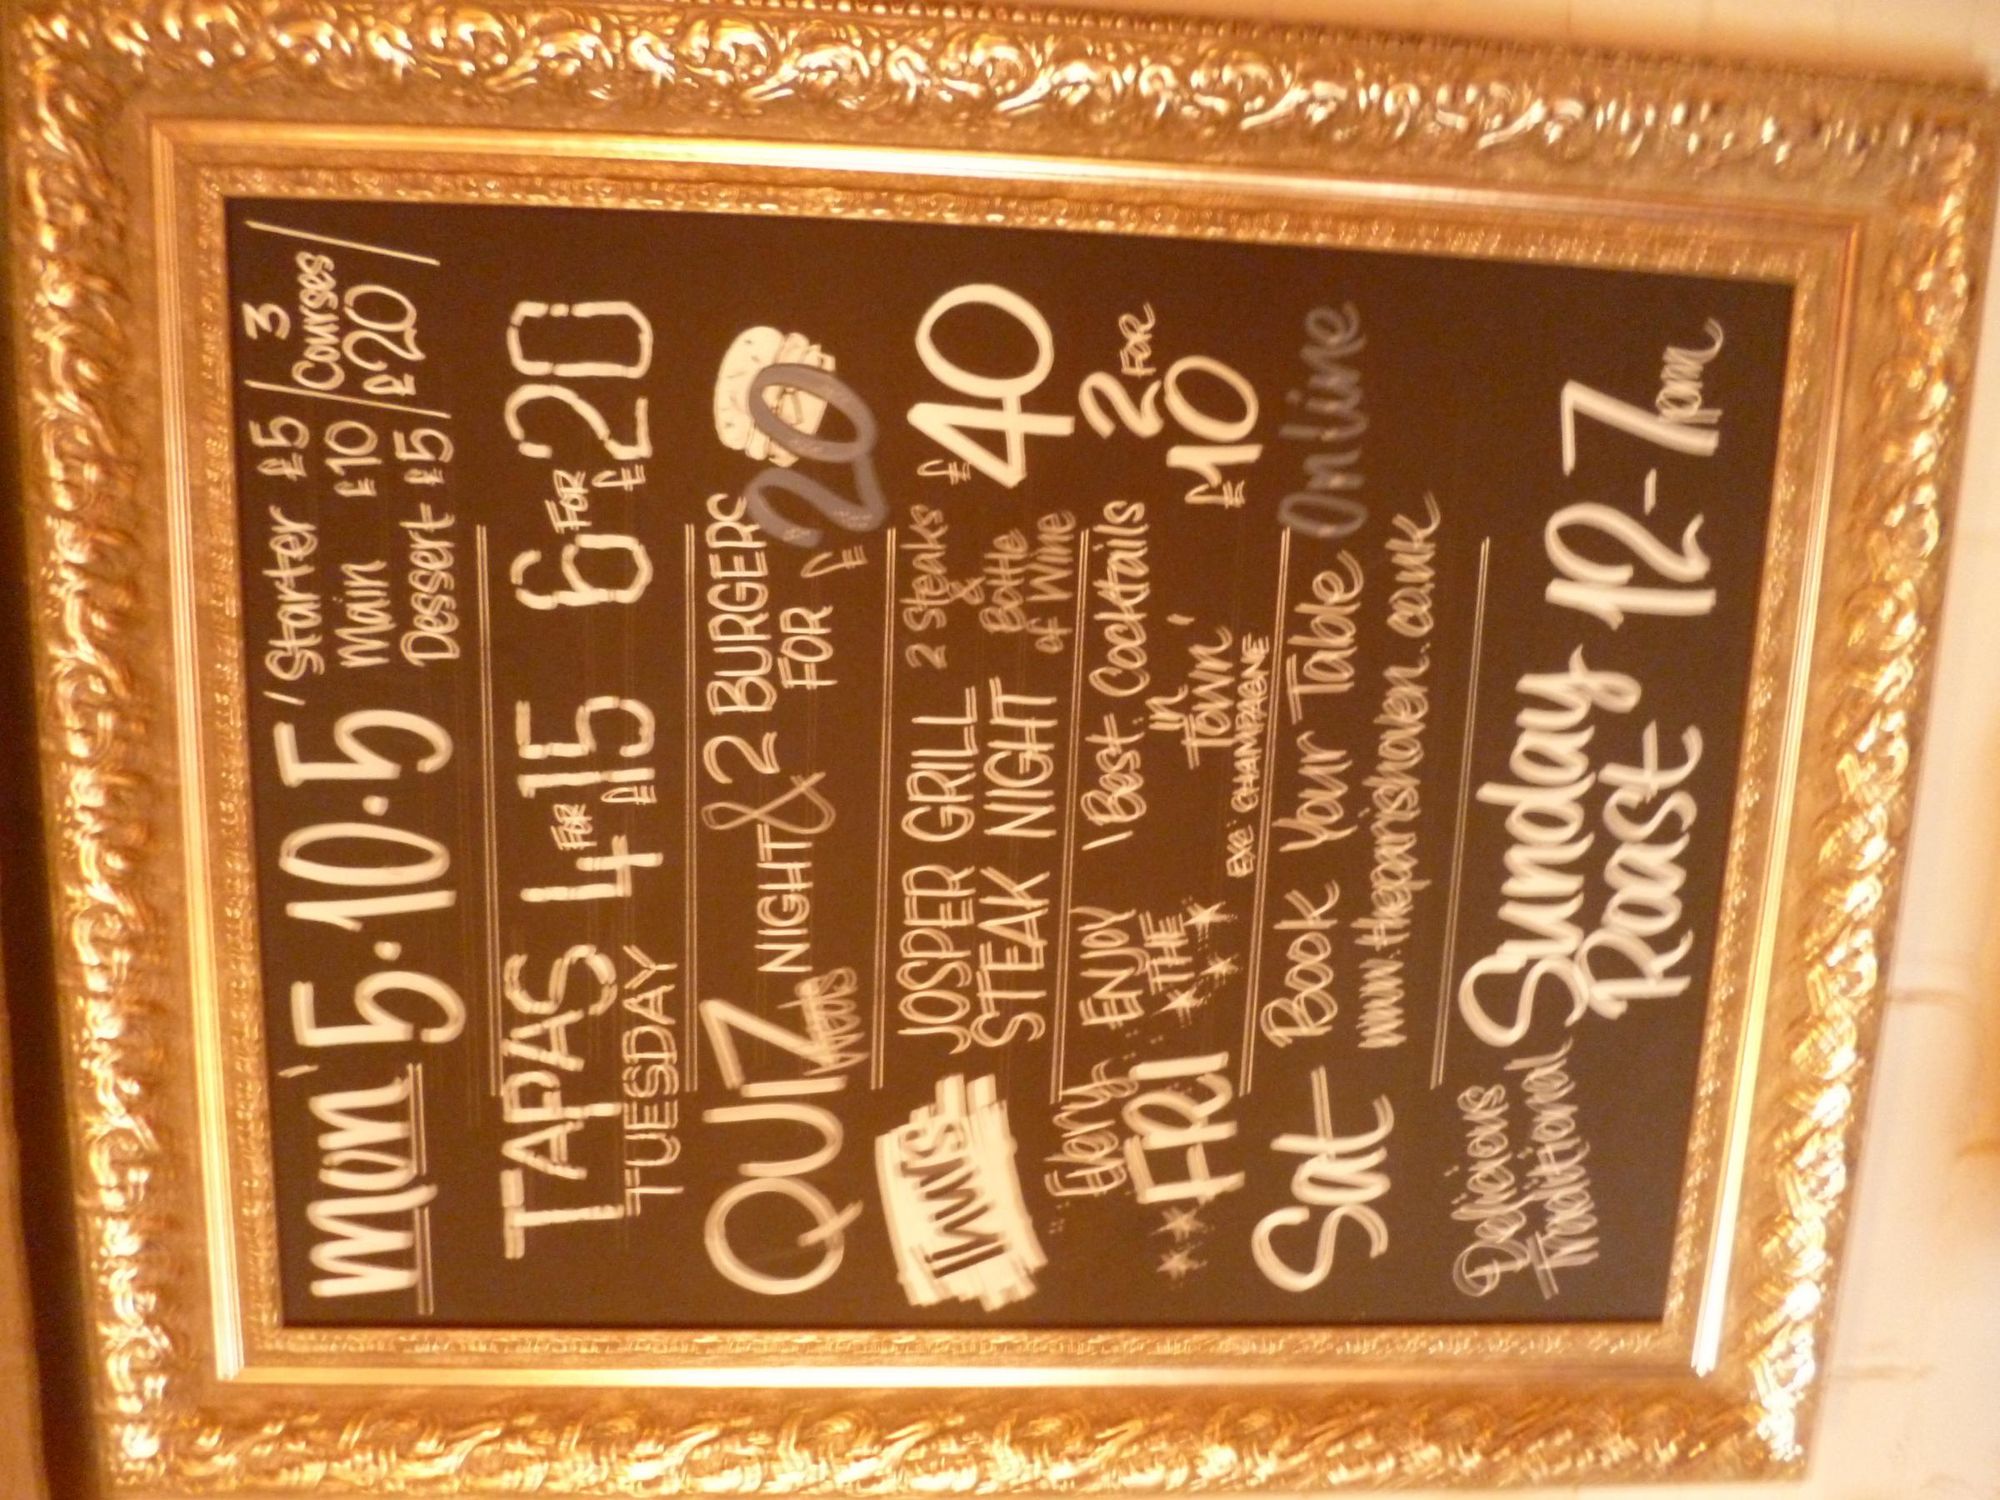 Mon' 5.10.5 'Starter £5 / 3
Main £10 / Courses
Dessert £5 / £20 /
TAPAS 4 FOR £15 6 FOR £20
TUESDAY
QUIZ NIGHT & 2 BURGERS
Weds FOR £20
Thurs JOSPER GRILL 2 Steaks £40
STEAK NIGHT & Bottle of Wine
Every FRI ENJOY THE 'Best Cocktails in Town' 2 FOR £10
EXC: CHAMPAGNE
Sat Book Your Table Online
www.theparishoven.co.uk
Delicious Traditional Sunday Roast 12-7pm